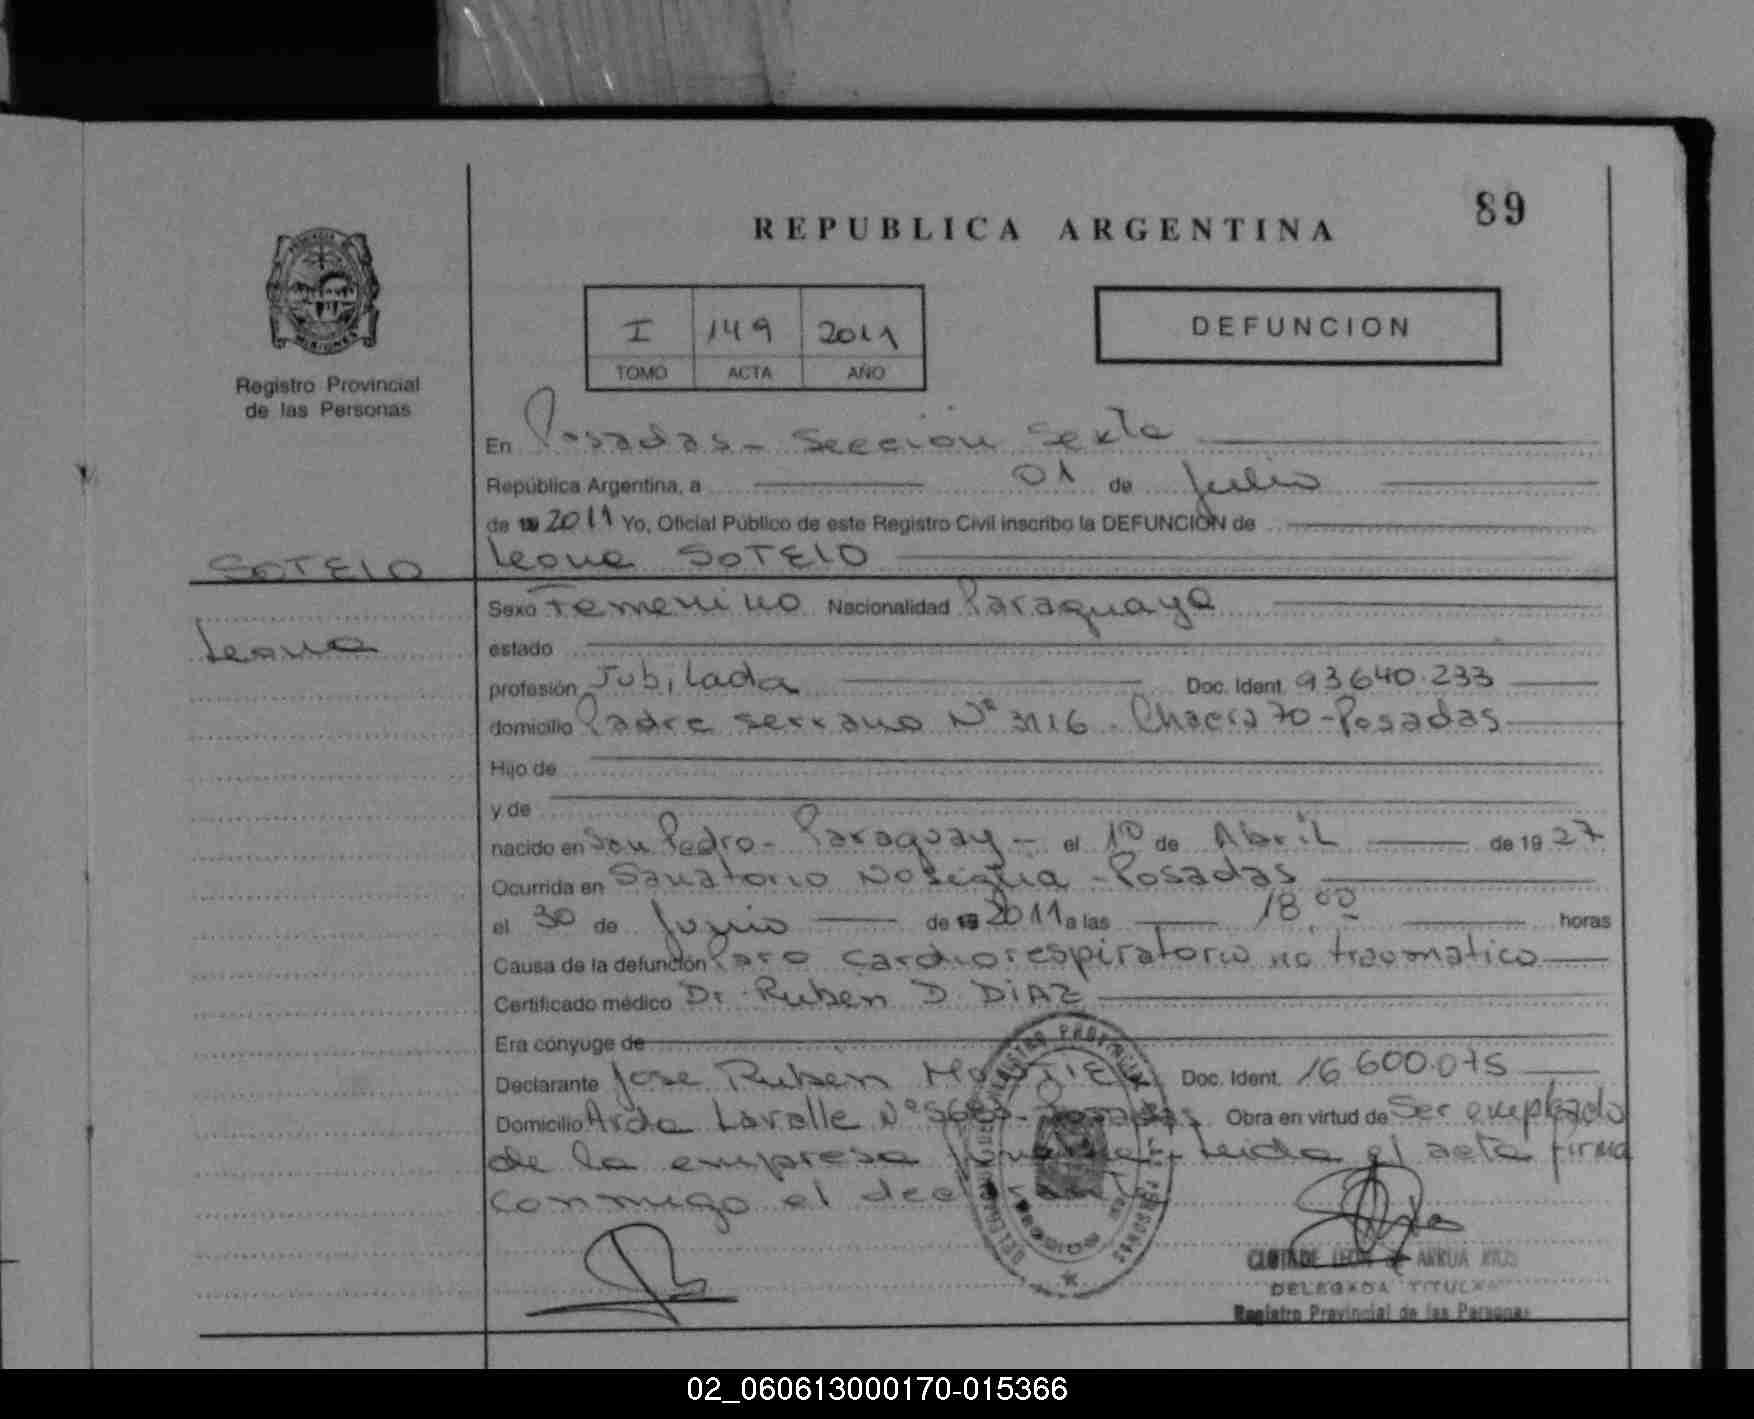 89
REPUBLICA ARGENTINA
PROVINCIA
MISIONES
Registro Provincial
de las Personas
I 149 2011
TOMO ACTA AÑO
DEFUNCION
En Posadas - Sección Sexta
República Argentina, a 01 de Julio
de 19 2011 Yo, Oficial Público de este Registro Civil inscribo la DEFUNCION de
SOTELO
Leona SOTELO
Sexo Femenino Nacionalidad Paraguaya
Leona
estado
profesión Jubilada Doc. Ident. 93640.233
domicilio Padre Serrano Nº 3116 - Chacra 70 - Posadas
Hijo de
y de
nacido en San Pedro - Paraguay - el 10 de Abril de 19 27
Ocurrida en Sanatorio Nosiglia - Posadas
el 30 de Junio de 19 2011 a las 18.00 horas
Causa de la defunción Paro cardiorespiratorio no traumatico
Certificado médico Dr. Ruben D. DIAZ
Era cónyuge de
Declarante Jose Ruben Doc. Ident. 16.600.075
Domicilio Avda Lavalle Nº - Posadas Obra en virtud de Ser empleado
de la empresa leida el acta firma
conmigo el declarante
DE LEON DE ARRUA
DELEGADA TITULAR
Registro Provincial de las Personas
02_060613000170-015366